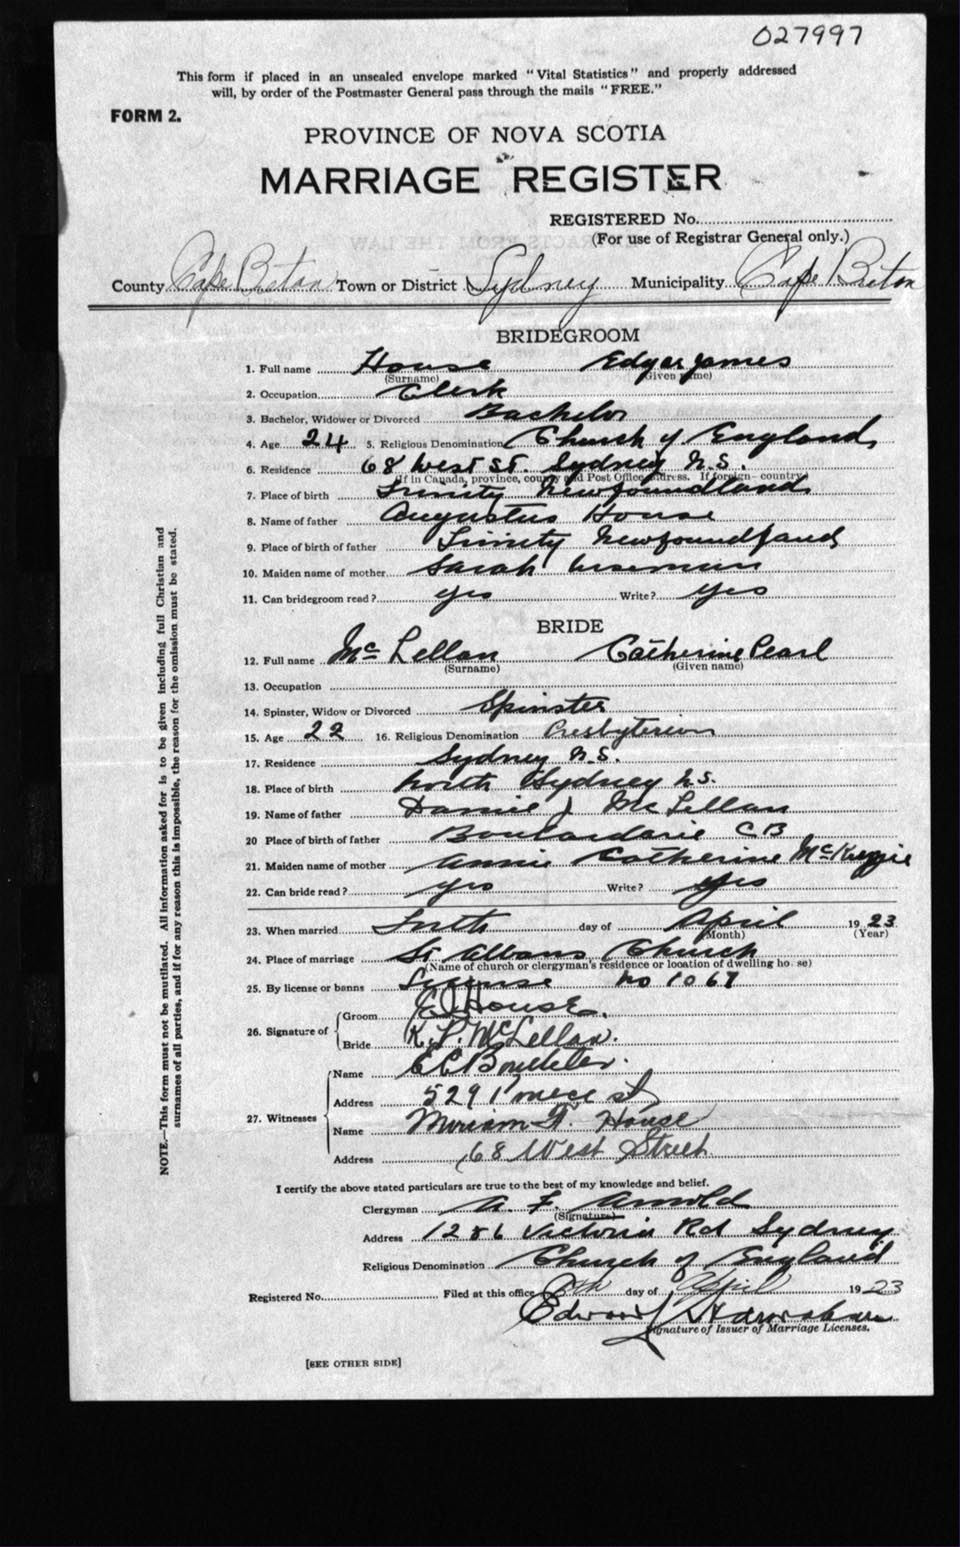 027997
This form if placed in an unsealed envelope marked "Vital Statistics" and properly addressed
will, by order of the Postmaster General pass through the mails "FREE."
FORM 2.
PROVINCE OF NOVA SCOTIA
MARRIAGE REGISTER
REGISTERED No.
(For use of Registrar General only.)
County Cape Breton Town or District Sydney Municipality Cape Breton
BRIDEGROOM
1. Full name House Edgar James
(Surname) (Given name)
2. Occupation Clerk
3. Bachelor, Widower or Divorced Bachelor
4. Age 24 5. Religious Denomination Church of England
6. Residence 68 West St. Sydney N.S.
(If in Canada, province, county and Post Office address. If foreign—country)
7. Place of birth Trinity Newfoundland
8. Name of father Augustus House
9. Place of birth of father Trinity Newfoundland
10. Maiden name of mother Sarah
11. Can bridegroom read? yes Write? yes
BRIDE
12. Full name McLellan Catherine Pearl
(Surname) (Given name)
13. Occupation
14. Spinster, Widow or Divorced Spinster
15. Age 22 16. Religious Denomination Presbyterian
17. Residence Sydney N.S.
18. Place of birth North Sydney N.S.
19. Name of father J McLellan
20 Place of birth of father Boulardarie CB
21. Maiden name of mother Annie Catherine McKenzie
22. Can bride read? yes Write? yes
23. When married day of April 1923
(Month) (Year)
24. Place of marriage St Albans Church
(Name of church or clergyman's residence or location of dwelling house)
25. By license or banns License No 1067
26. Signature of
Groom E J House.
Bride K. P. McLellan.
27. Witnesses
Name
Address 529
Name Miriam House
Address 68 West Street
I certify the above stated particulars are true to the best of my knowledge and belief.
Clergyman A. F. Arnold
(Signature)
Address 1286 Victoria Rd Sydney
Religious Denomination Church of England
Registered No. Filed at this office day of April 1923
Edward
Signature of Issuer of Marriage Licenses.
[SEE OTHER SIDE]
NOTE.—This form must not be mutilated. All information asked for is to be given including full Christian and
surnames of all parties, and if for any reason this is impossible, the reason for the omission must be stated.